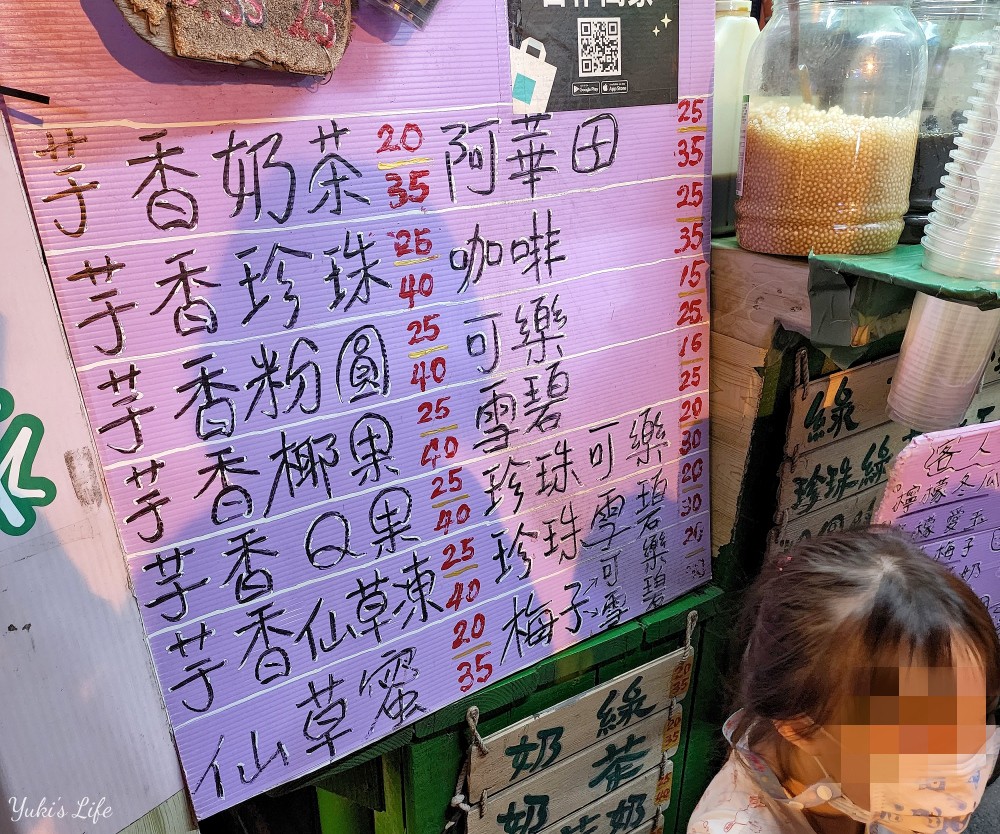 合作商家
Google Play
App Store
芋香奶茶 20 35
芋香珍珠 25 40
芋香粉圓 25 40
芋香椰果 25 40
芋香Q果 25 40
芋香仙草凍 25 40
仙草蜜 20 35
阿華田 25 35
咖啡 25 35
可樂 15 25
雪碧 16 25
珍珠可樂 20 30
珍珠雪碧 20 30
梅子可樂 20
雪碧
綠
珍珠綠
客人
檸檬冬瓜
檸檬愛玉
梅子
奶
奶綠 20 35
奶茶
奶
奶
Yuki's Life